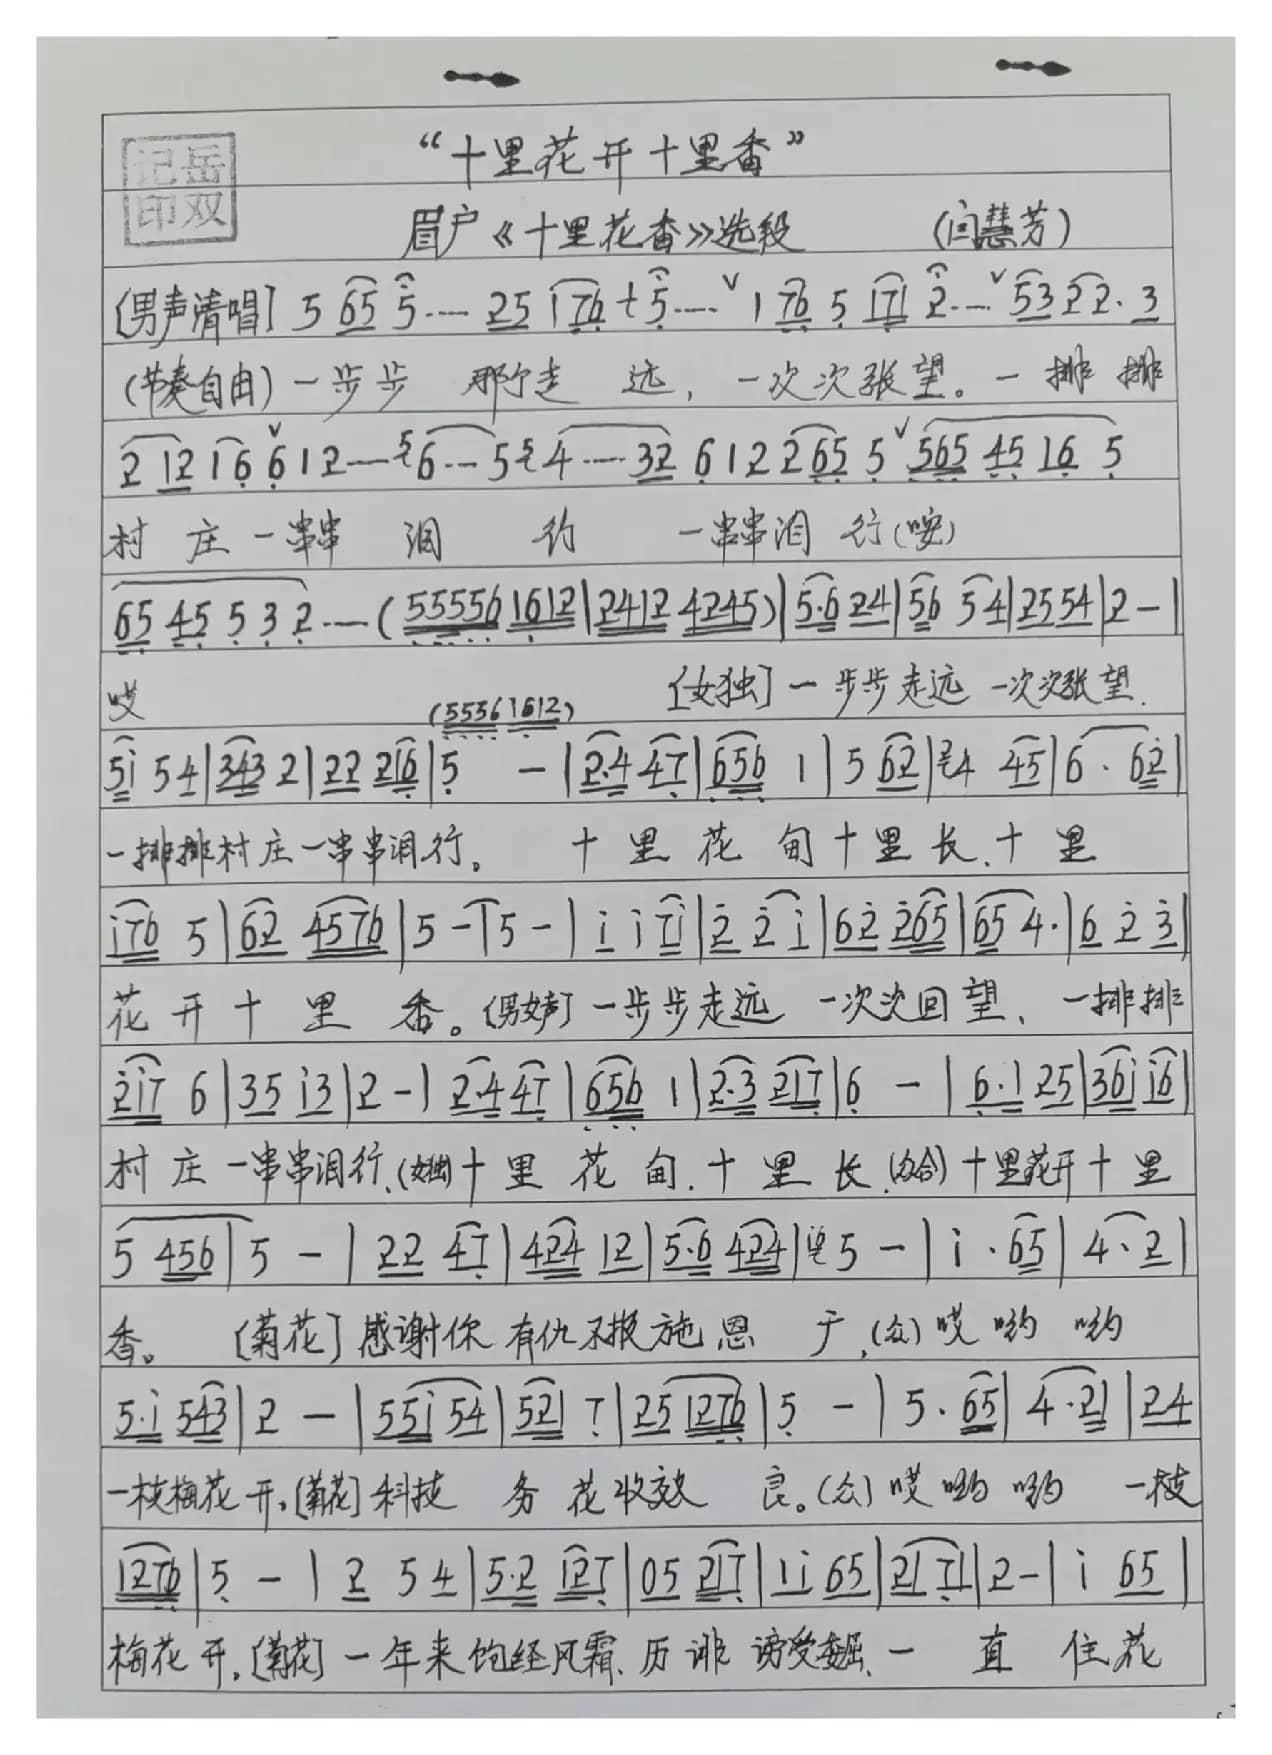 “十里花开十里香”
记岳
印双
眉户《十里花香》选段 (闫慧芳)
[男声清唱] 5 65 5.... 25 176 + 5.... ∨ 1 76 5 171 2.... ∨ 53 22. 3
(节奏自由) 一步步 那走 远, 一次次张望。一排排
2 12 16 ∨ 6 12.... 6.... 5 4.... 32 6 12 2 65 5 ∨ 565 45 16 5
村庄一串串 泪行 一串串泪行(咹)
65 45 5 3 2.... (55556 1612|2412 4245)|5·6 24|56 54|2554|2 -|
哎 [女独] 一步步走远 一次次张望.
(5556 1612)
51 54|343 2|22 216|5 -|2·4 47|656 1|5 62|4 45|6 · 62|
一排排村庄一串串泪行。 十里花甸十里长、十里
176 5|62 4576|5 -|5 -|1 1 71|2 2 1|62 265|65 4·|6 2 3|
花开十里香。[男女声] 一步步走远 一次次回望、一排排
217 6|35 13|2 -|2·4 47|656 1|2·3 217|6 -|6·1 25|361 16|
村庄一串串泪行、(女独)十里花甸、十里长、(齐合)十里花开十里
5 456|5 -|22 47|424 12|5·6 424|5 -|1 · 65|4 · 2|
香。 [菊花] 感谢你 有仇不报施恩 于,(众)哎哟哟
5·1 543|2 -|551 54|521 7|25 1276|5 -|5 · 65|4 · 21|24
一枝梅花开,[菊花] 科技 务花收效 良。(众)哎哟哟 一枝
1276|5 -|2 5 4|5·2 127|05 217|11 65|21 71|2 -|1 65|
梅花开,[菊花] 一年来饱经风霜、历诽谤受委屈、一直住花